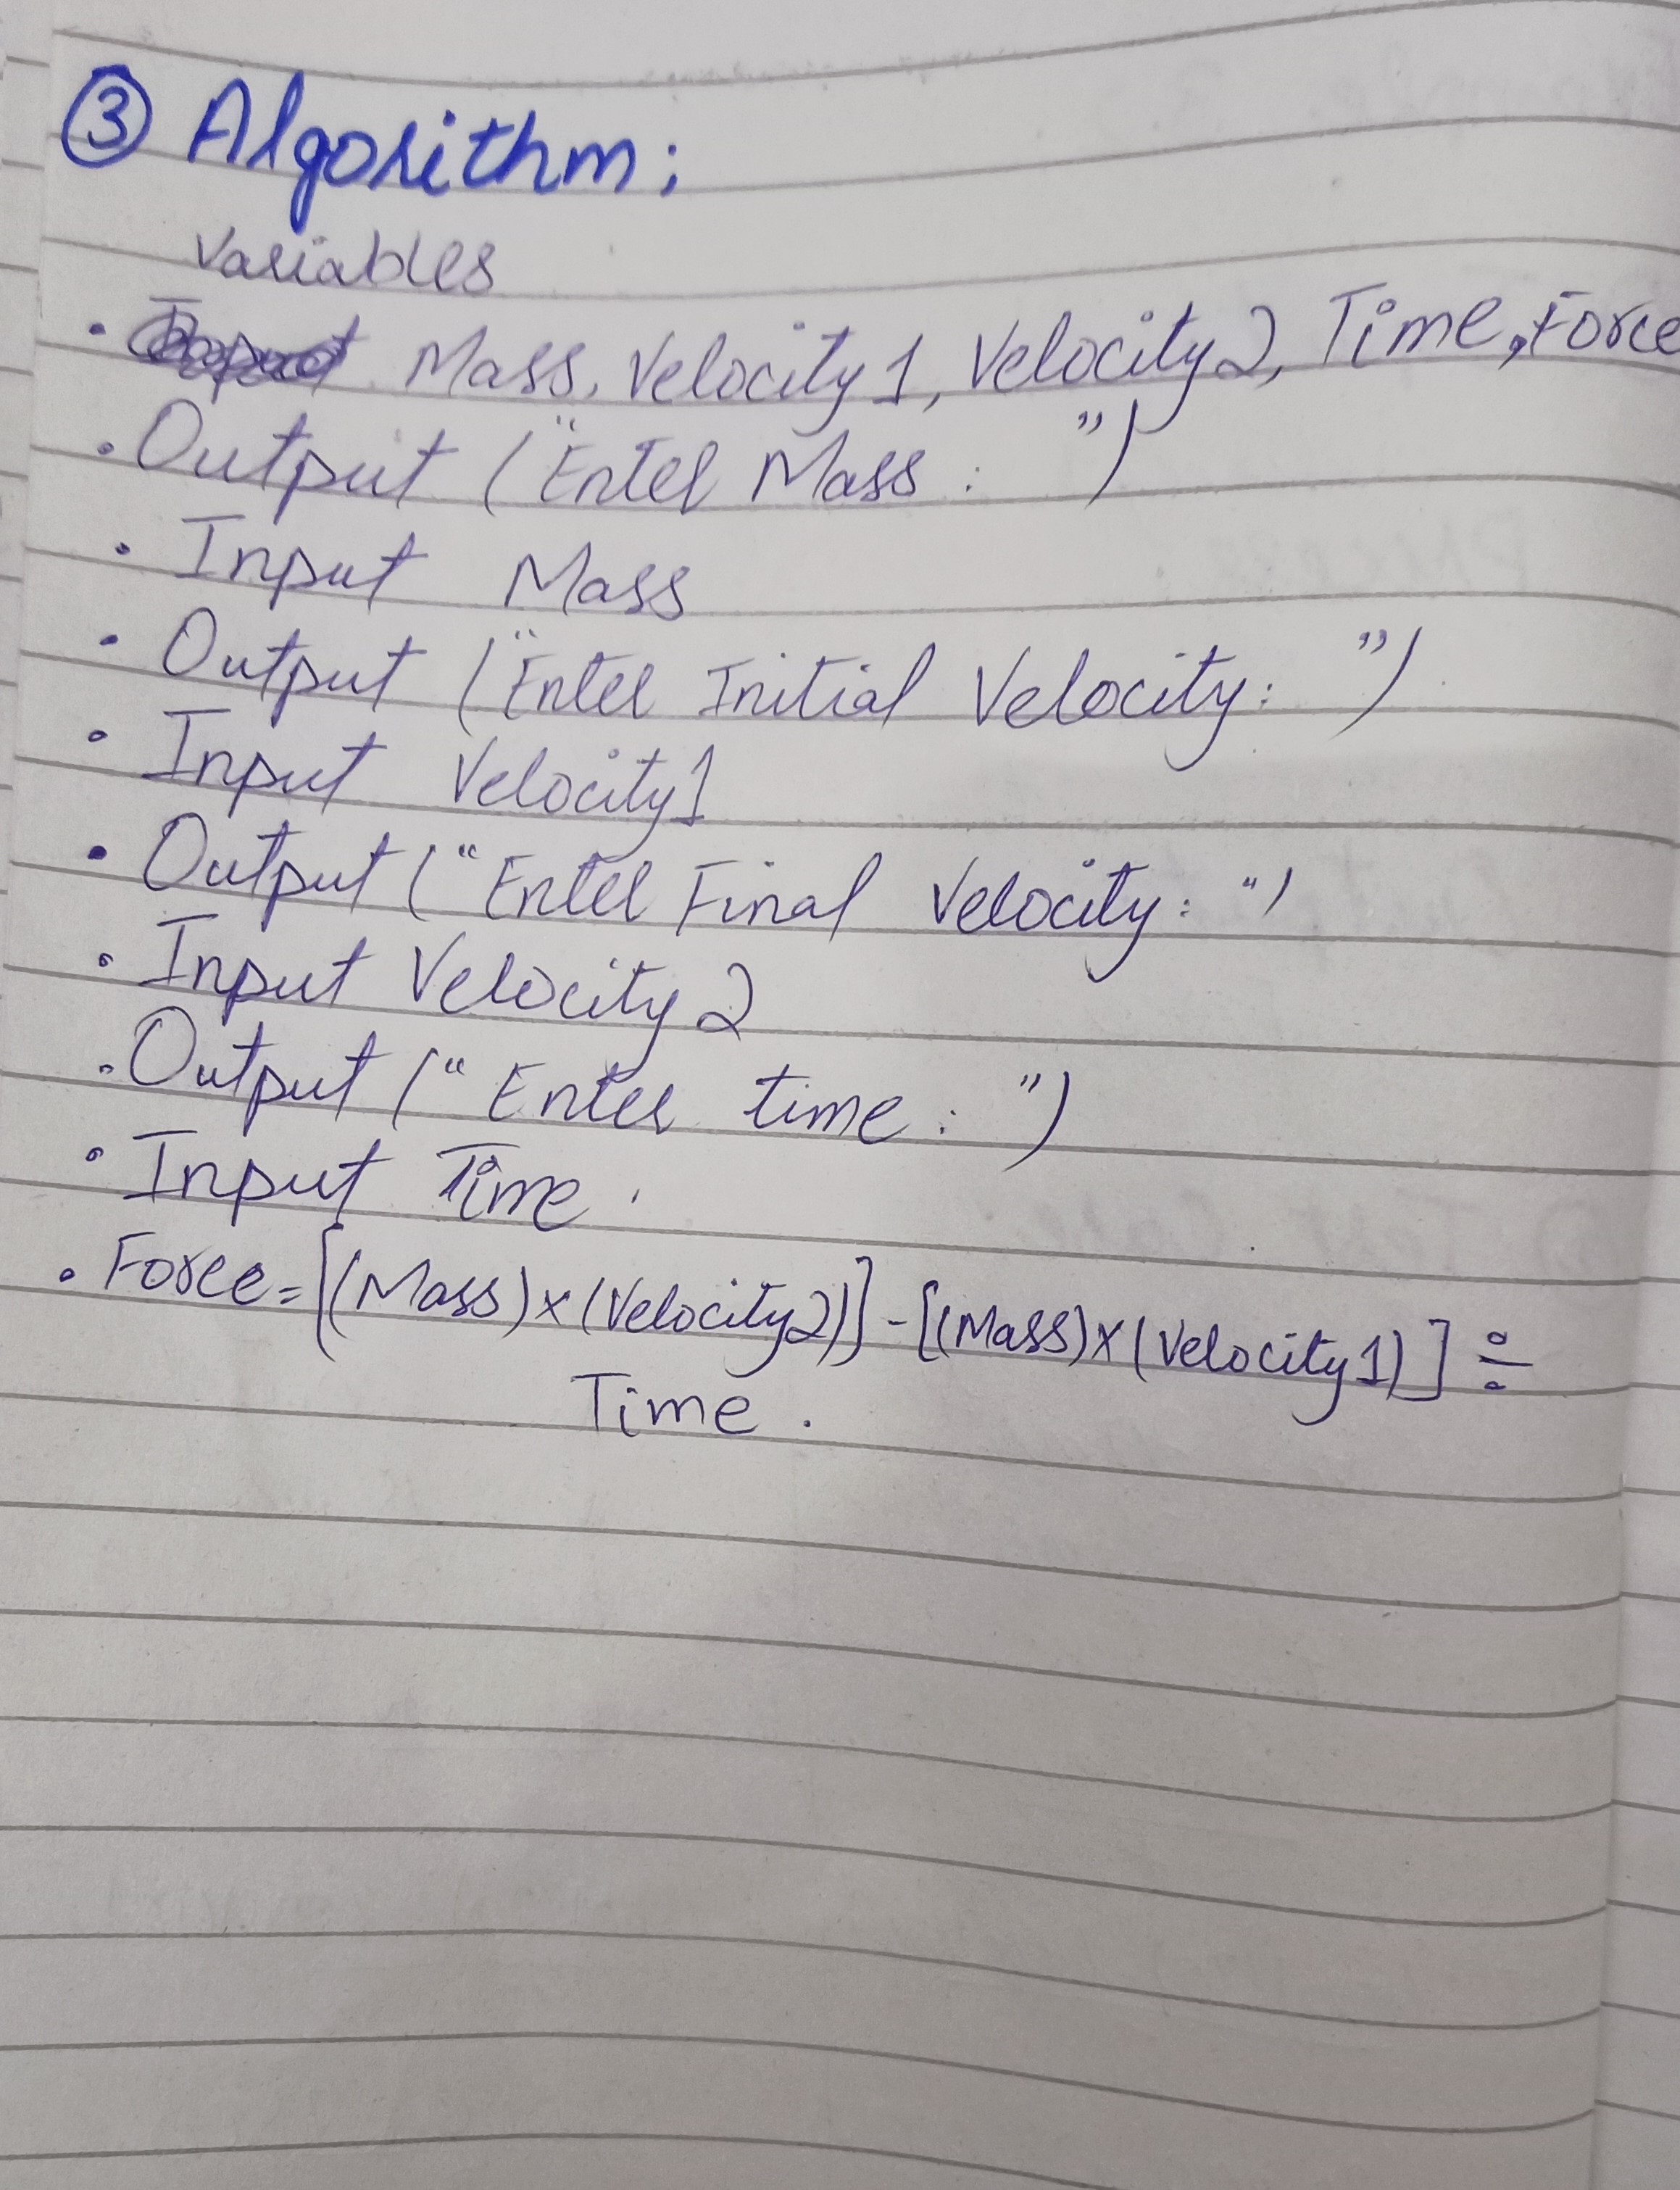 ③ Algorithm:
Variables
• Mass, Velocity1, Velocity2, Time, Force
• Output ("Enter Mass : ")
• Input Mass
• Output ("Enter Initial Velocity: ")
• Input Velocity1
• Output ("Enter Final Velocity: ")
• Input Velocity2
• Output ("Enter time : ")
• Input Time.
• Force = [(Mass)×(Velocity2)] - [(Mass)×(Velocity1)] ÷
Time.